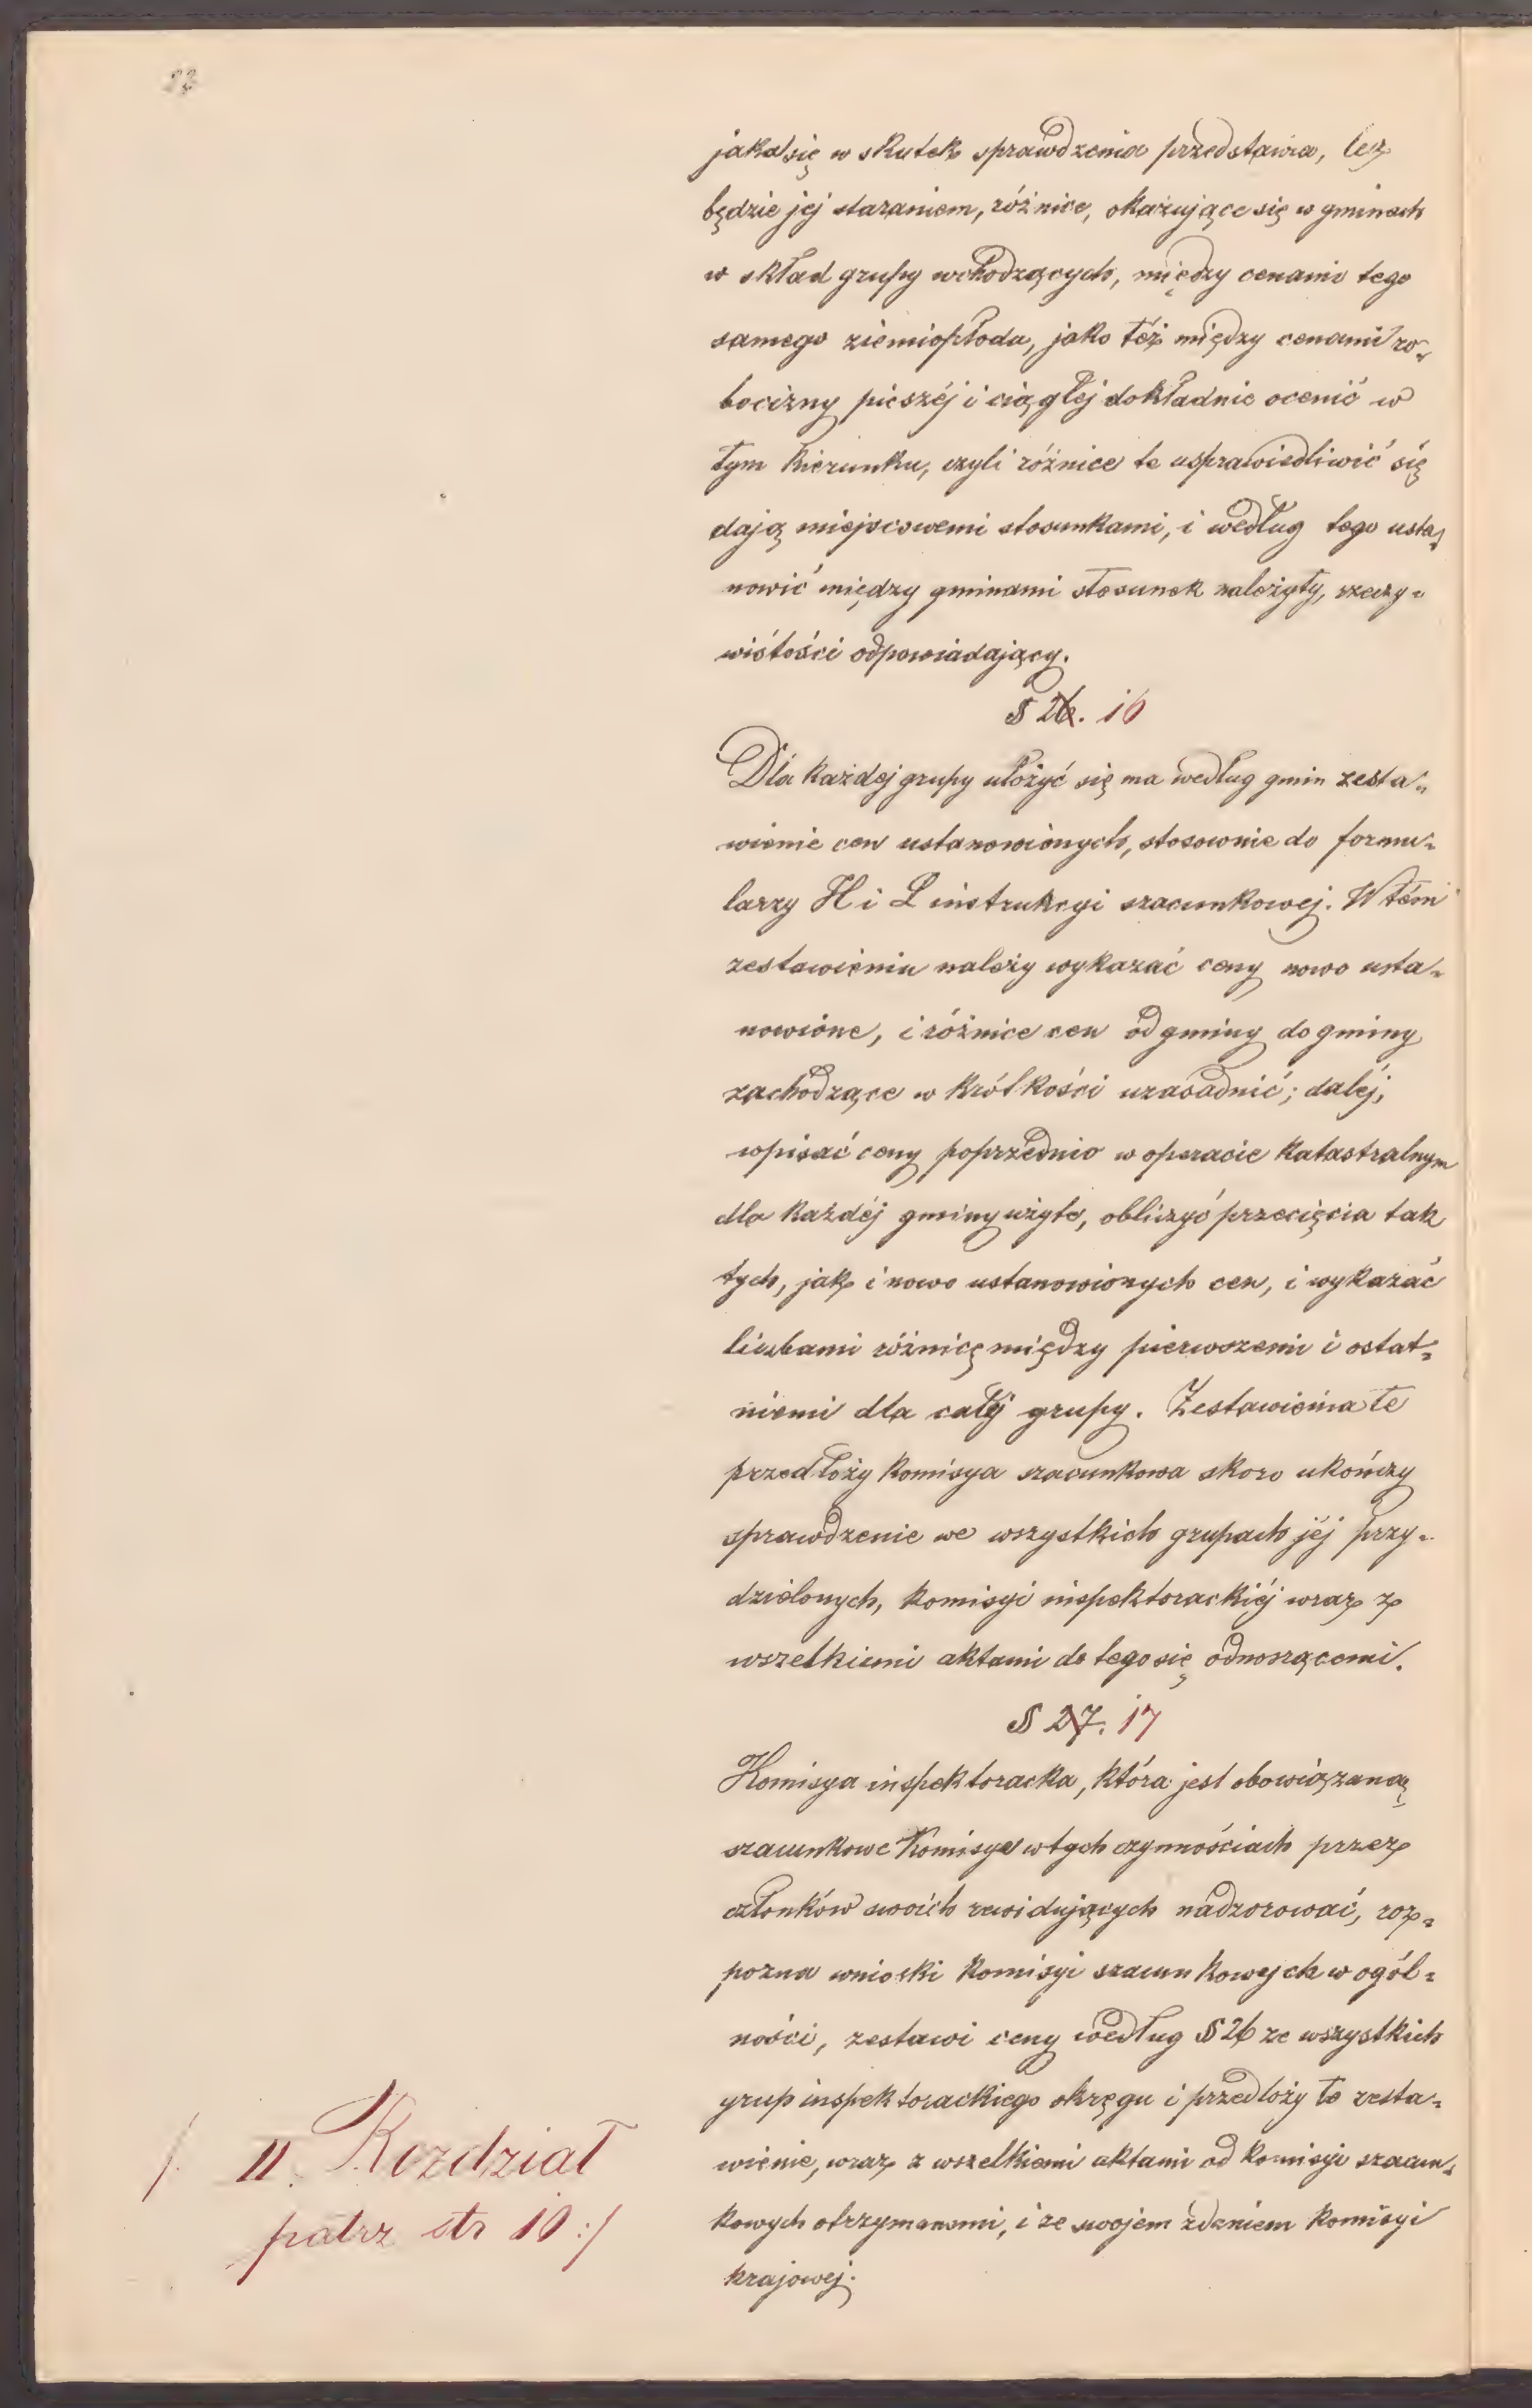 jaka się w skutek sprawdzenia przedstawia, lecz
będzie jej staraniem, różnice, okazujące się w gminach
w skład grupy wchodzących, między cenami tego
samego ziemiopłoda, jako też między cenami ro-
bocizny pieszéj i ciągłej dokładnie ocenić w
tym kierunku, czyli różnice te usprawiedliwić się
dają miejscowemi stosunkami, i według tego usta-
nowić między gminami stosunek należyty, rzeczy-
wistości odpowiadający.
§ 26. 16
Dla każdej grupy ułożyć się ma według gmin zesta-
wienie cen ustanowionych, stosownie do formu-
larzy H i L instrukcyi szacunkowej. W tém
zestawieniu należy wykazać ceny nowo usta-
nowione, i różnice cen od gminy do gminy
zachodzące w krótkości uzasadnić; daléj,
wpisać ceny poprzednio w operacie katastralnym
dla każdéj gminy użyte, obliczyć przecięcia tak
tych, jak i nowo ustanowionych cen, i wykazać
liczbami różnicę między pierwszemi i ostat-
niemi dla całéj grupy. Zestawienia te
przedłoży komisya szacunkowa skoro ukończy
sprawdzenie we wszystkich grupach jéj przy-
dzielonych, komisyi inspektorackiéj wraz z
wszelkiemi aktami do tego się odnoszącemi.
§ 27. 17
Komisya inspektoracka, która jest obowiązaną
szacunkowe Komisye w tych czynnościach przez
członków swoich rewidujących nadzorować, roz-
pozna wnioski komisyi szacunkowych w ogól-
ności, zestawi ceny według § 26 ze wszystkich
grup inspektorackiego okręgu i przedłoży to zesta-
wienie, wraz z wszelkiemi aktami od komisyi szacun-
kowych otrzymanemi, i ze swojem zdaniem komisyi
krajowej.
/. II. Rozdział
patrz str 10 :/